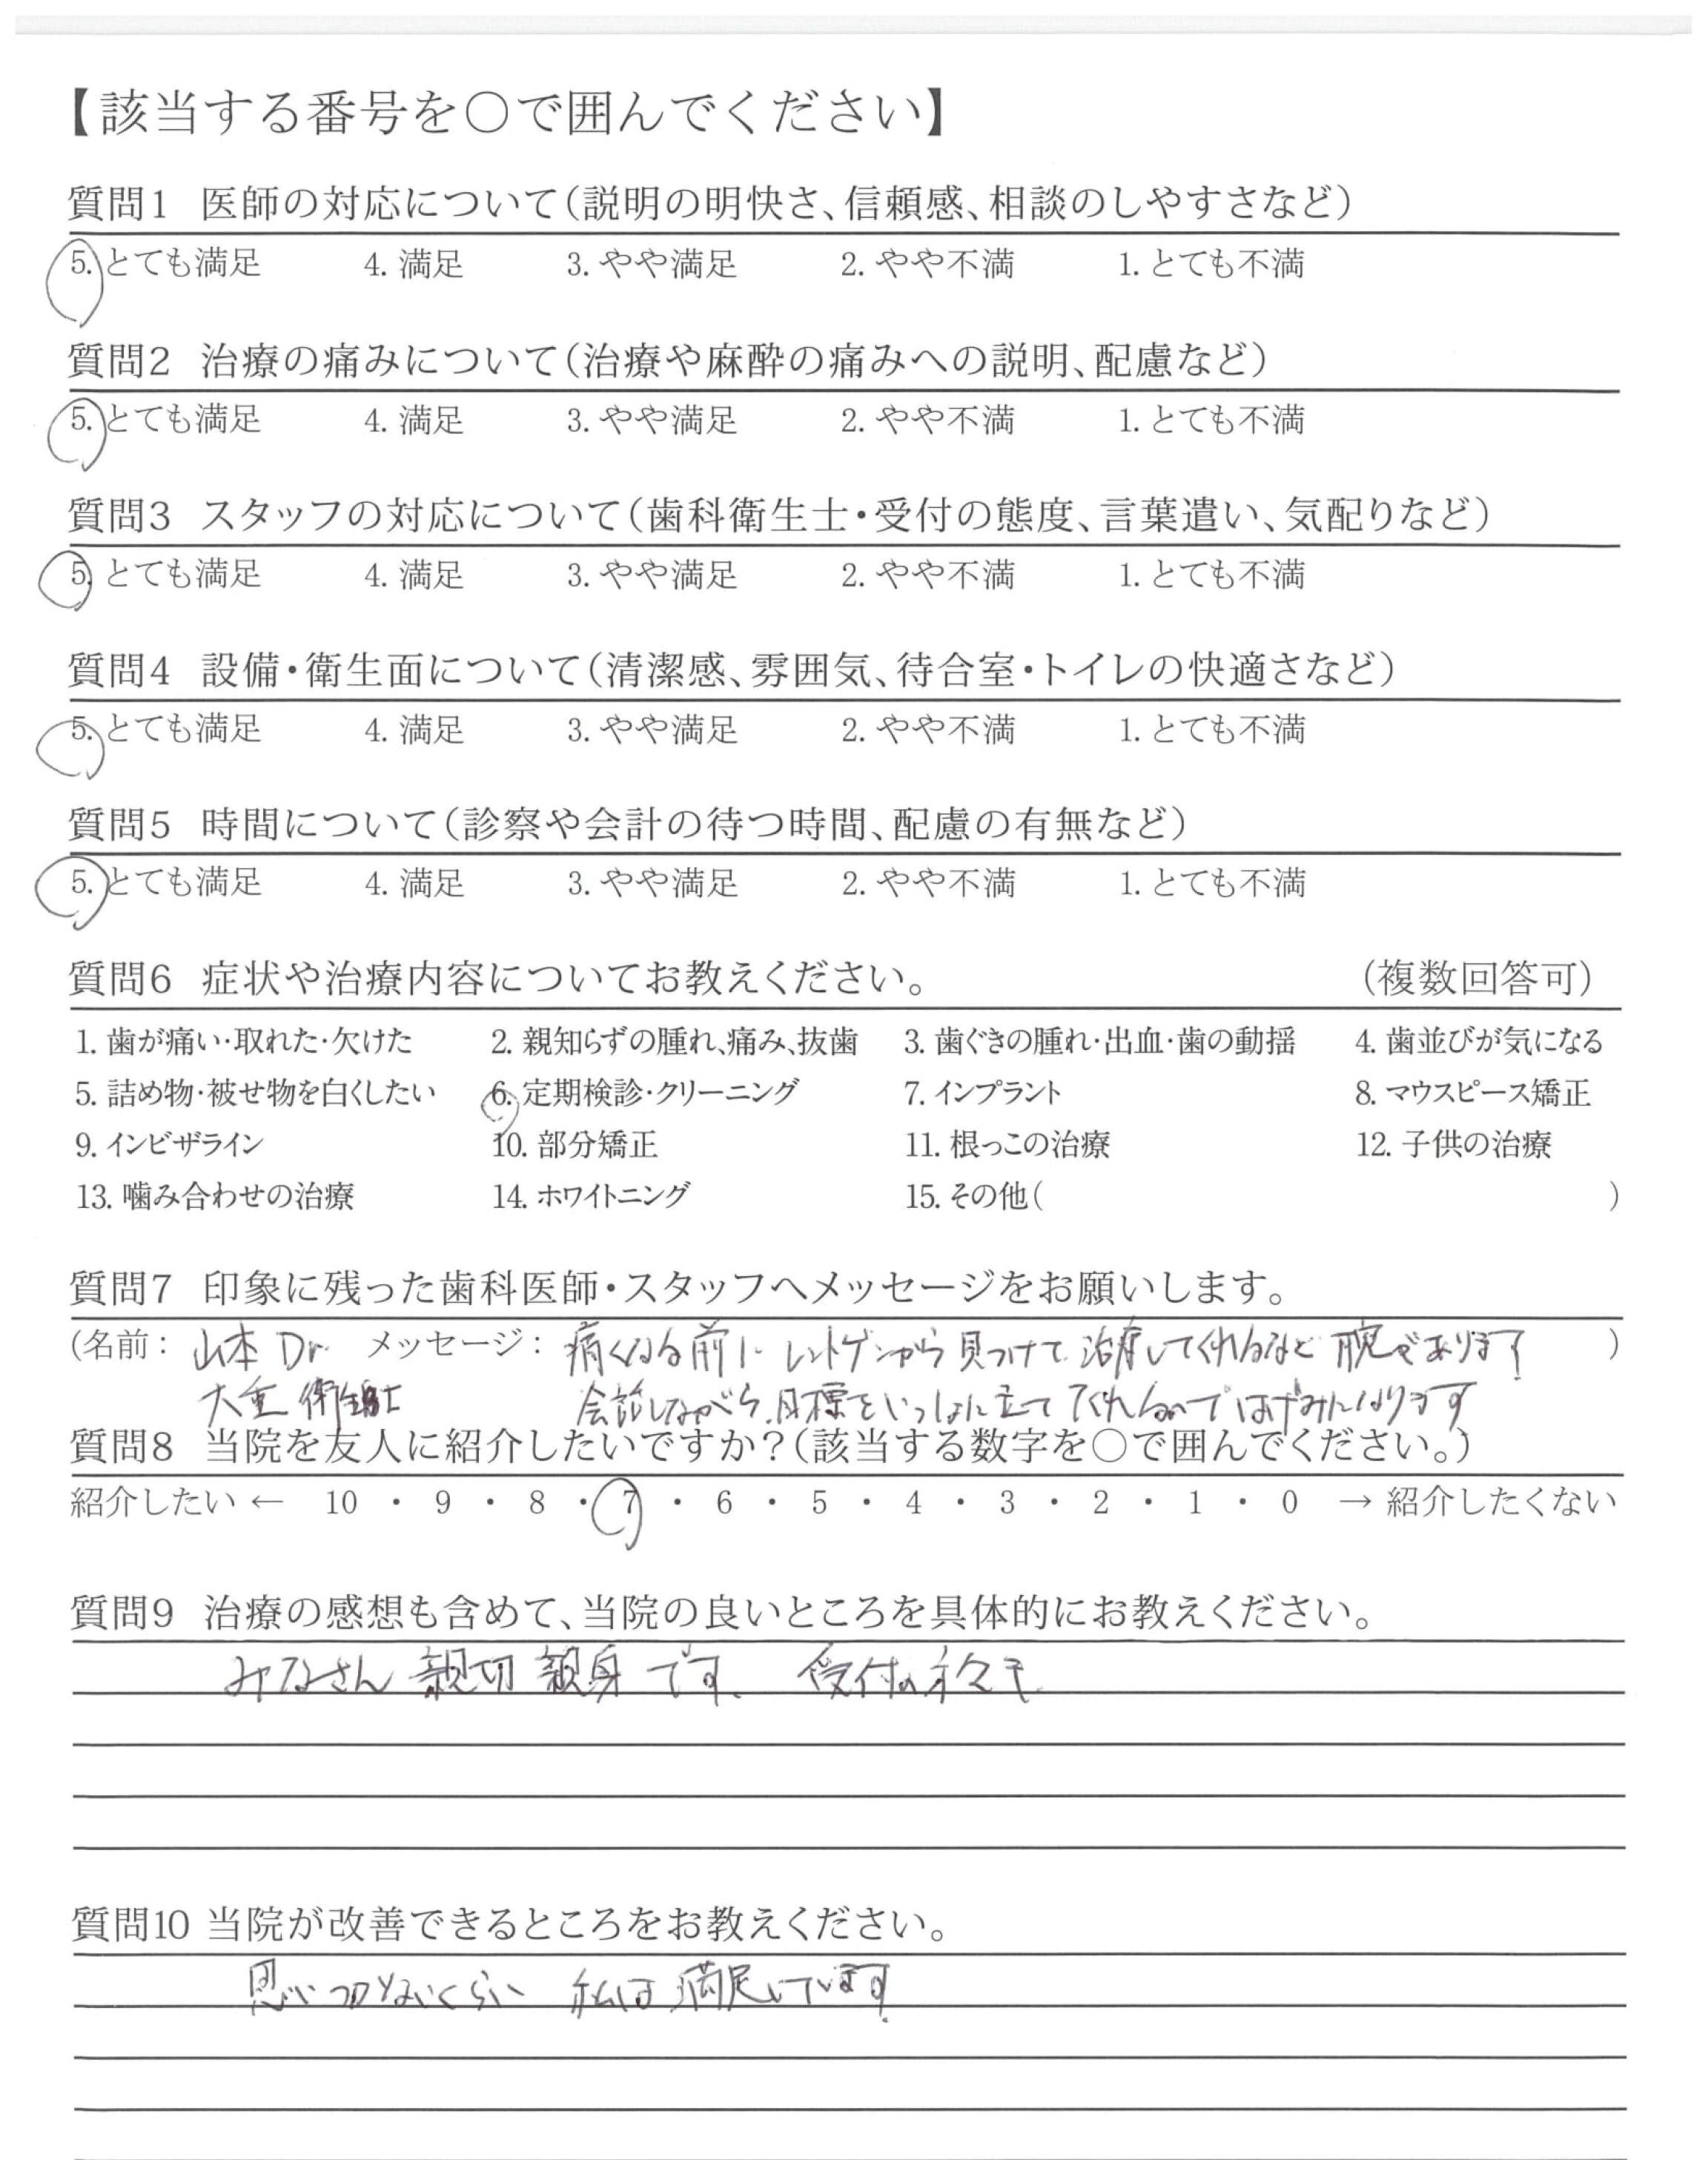 【該当する番号を○で囲んでください】
質問1 医師の対応について(説明の明快さ、信頼感、相談のしやすさなど)
5. とても満足 4. 満足 3. やや満足 2. やや不満 1. とても不満
質問2 治療の痛みについて(治療や麻酔の痛みへの説明、配慮など)
5. とても満足 4. 満足 3. やや満足 2. やや不満 1. とても不満
質問3 スタッフの対応について(歯科衛生士・受付の態度、言葉遣い、気配りなど)
5. とても満足 4. 満足 3. やや満足 2. やや不満 1. とても不満
質問4 設備・衛生面について(清潔感、雰囲気、待合室・トイレの快適さなど)
5. とても満足 4. 満足 3. やや満足 2. やや不満 1. とても不満
質問5 時間について(診察や会計の待つ時間、配慮の有無など)
5. とても満足 4. 満足 3. やや満足 2. やや不満 1. とても不満
質問6 症状や治療内容についてお教えください。 (複数回答可)
1. 歯が痛い・取れた・欠けた 2. 親知らずの腫れ、痛み、抜歯 3. 歯ぐきの腫れ・出血・歯の動揺 4. 歯並びが気になる
5. 詰め物・被せ物を白くしたい 6. 定期検診・クリーニング 7. インプラント 8. マウスピース矯正
9. インビザライン 10. 部分矯正 11. 根っこの治療 12. 子供の治療
13. 噛み合わせの治療 14. ホワイトニング 15. その他( )
質問7 印象に残った歯科医師・スタッフへメッセージをお願いします。
(名前: 山本 Dr. メッセージ: 痛くなる前に レントゲンから 見つけて 治療してくれるなど 腕があります )
大重 衛生士 会話しながら、目標をいっしょに立ててくれるので はげみになります
質問8 当院を友人に紹介したいですか?(該当する数字を○で囲んでください。)
紹介したい ← 10 ・ 9 ・ 8 ・ 7 ・ 6 ・ 5 ・ 4 ・ 3 ・ 2 ・ 1 ・ 0 → 紹介したくない
質問9 治療の感想も含めて、当院の良いところを具体的にお教えください。
みなさん 親切 親身 です。 受付の方々も
質問10 当院が改善できるところをお教えください。
思いつかないくらい 私は 満足しています。